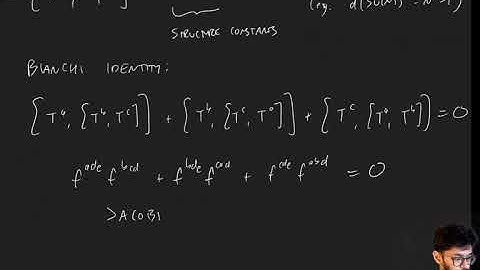 STRUCTURE CONSTANTS
BIANCHI IDENTITY:
[T^a, [T^b, T^c]] + [T^b, [T^c, T^a]] + [T^c, [T^a, T^b]] = 0
f^{ade} f^{bcd} + f^{bde} f^{cad} + f^{cde} f^{abd} = 0
JACOBI